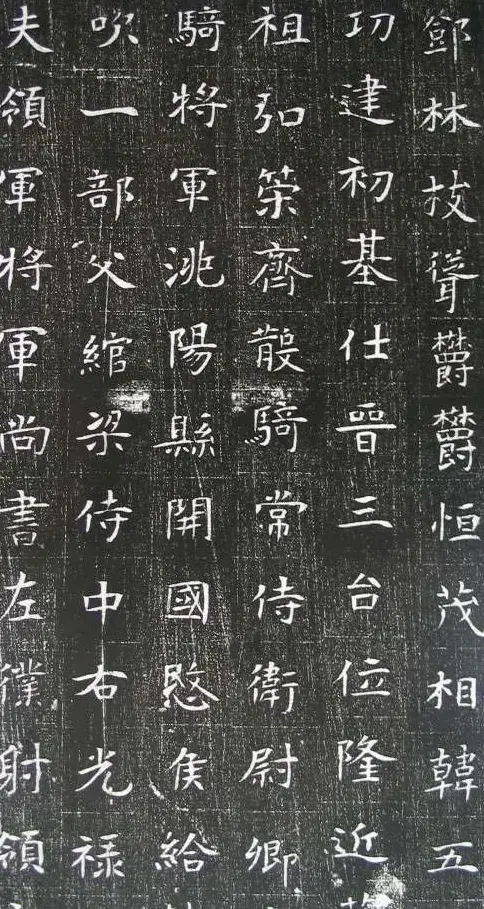 鄧林技聳欝欝恒茂相韓五
功建初基仕晉三台位隆近
祖弘策齊散騎常侍衛尉卿
騎將軍洮陽縣開國愍侯給
吹一部父綰梁侍中右光禄
夫領軍將軍尚書左僕射領